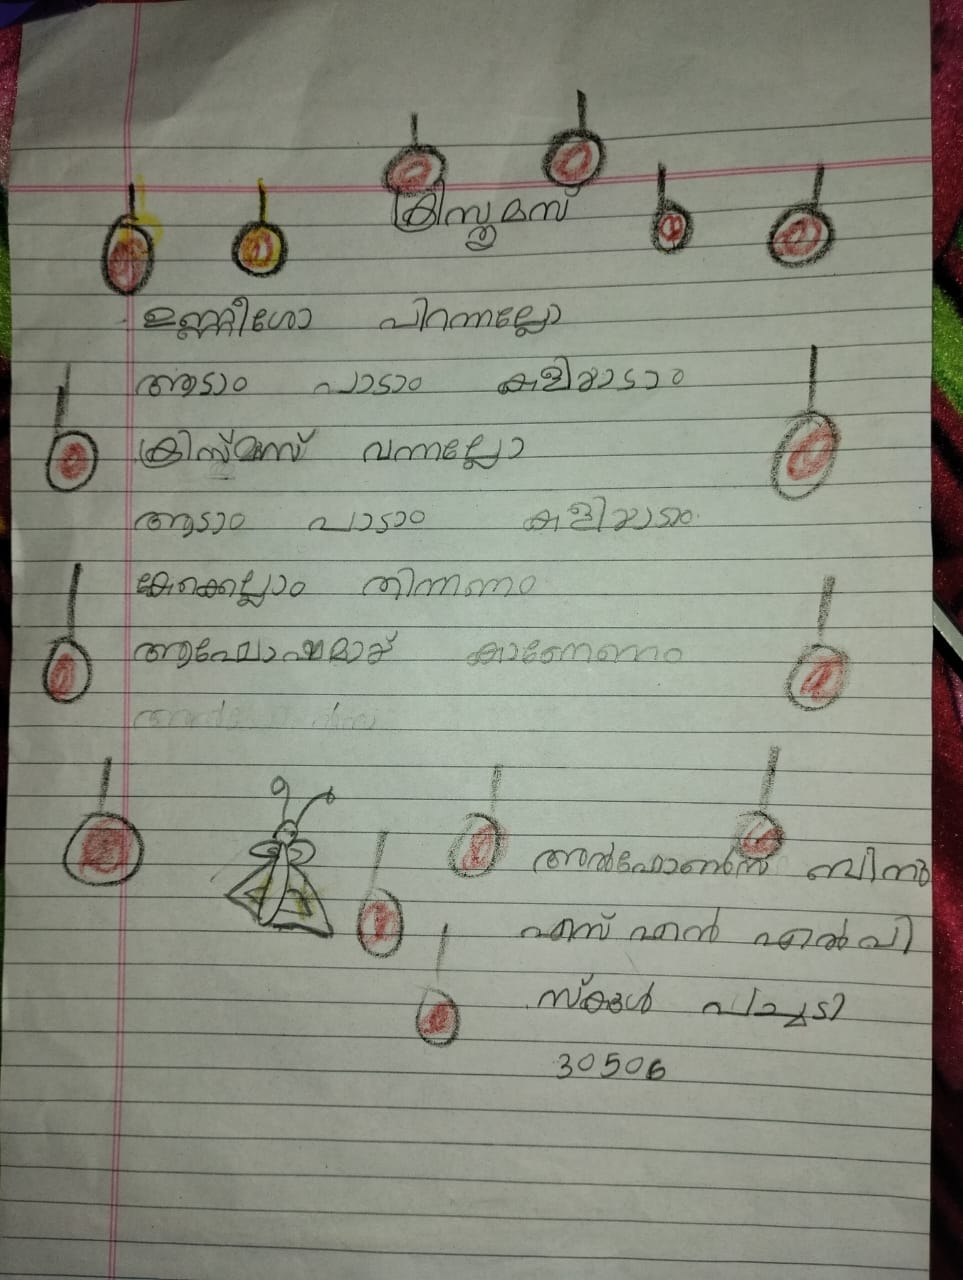 ക്രിസ്തുമസ്
ഉണ്ണീശോ പിറന്നല്ലോ
ആടാം പാടാം കളിയാടാം
ക്രിസ്മസ് വന്നല്ലോ
ആടാം പാടാം കളിയാടാം
കേക്കെല്ലാം തിന്നണം
ആഘോഷമാക്
അൽഫോൺസ ബിനു
എസ് എൻ എൽ പി
സ്കൂൾ പാച്ചടി
30506